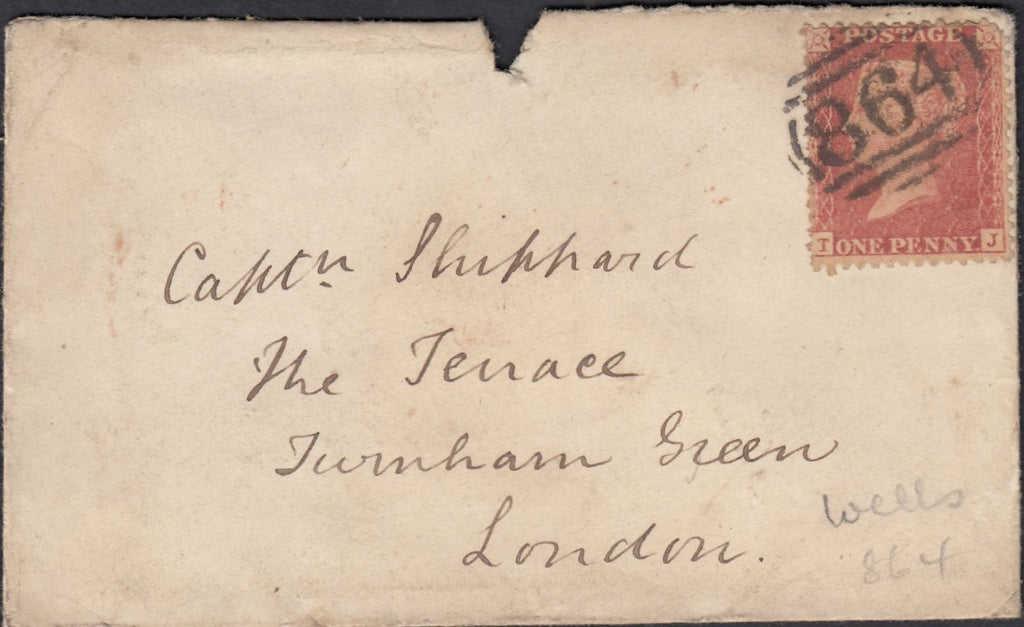 POSTAGE
864
T ONE PENNY J
Captn Shippard
The Terrace
Turnham Green
London.
Wells
864